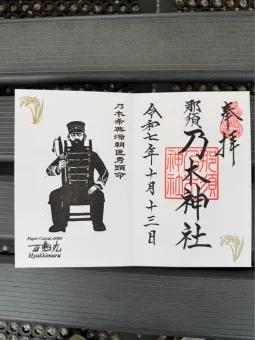 奉拝
那須
乃木神社
那須
神社
令和七年十月十三日
乃木希典源朝臣秀顕命
Paper Cutout Artist
百鬼丸
Hyakkimaru